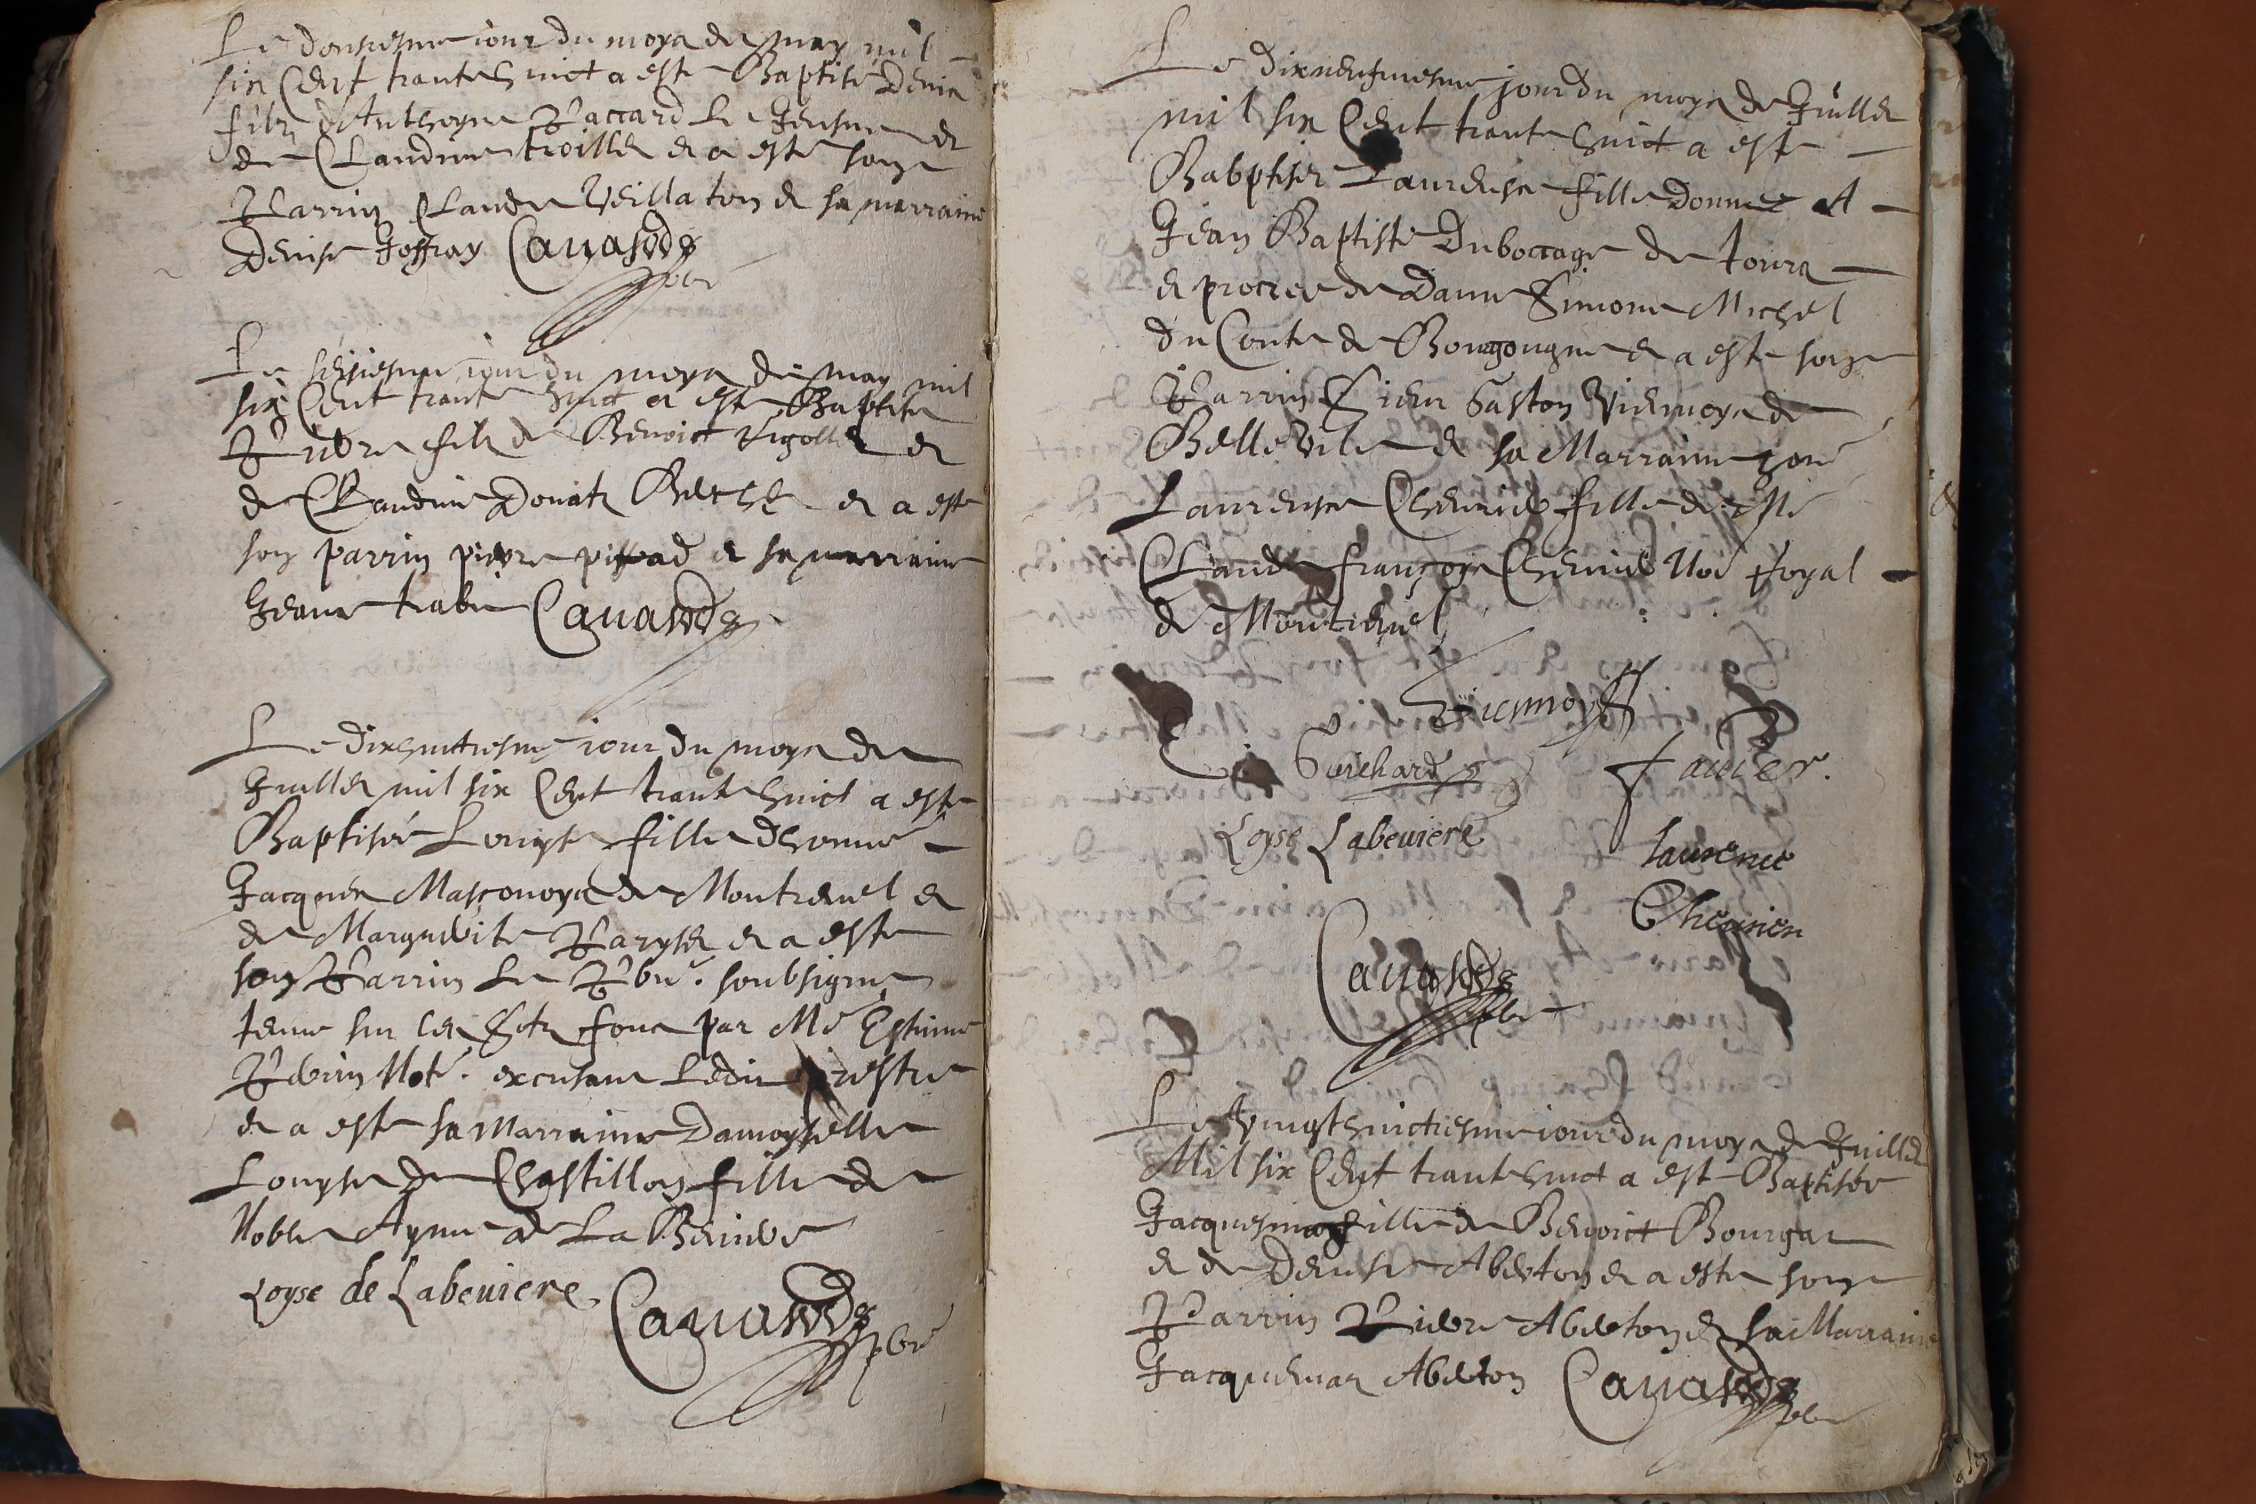 Le douziesme iour du moys de may mil
six Cent trante huict a este Baptisé Denis
filz d'Anthoyne Paccard le Jeusne et
de Claudine troillet et a esté son
Parrin Claude Veillaton et sa marraine
Denise Joffray Cauasso
pbre
Le seiziesme iour du moys de may mil
six Cent trante huict a este Baptisé
Pierre filz de Benoict et
de Claudine Donat et a esté
son parrin pierre et sa marraine
Jeane Cauasso
Le dixhuictiesme iour du moys de
Juillet mil six Cent trante huict a esté
Baptisée Louyse fille d'honné
Jacques Masconoys de Montreuel et
de Marguerite et a esté
son Parrin le Pbre soubsigné
tenue sur les Sts fons par Me Estienne
Not. excusant ledit prestre
et a esté sa Marraine Damoyselle
Louyse de Chastillon fille de
Noble Ayme de La Beuiere
Loyse de Labeuiere Cauasso
pbre
Le dixneufuiesme jour du moys de Juillet
mil six Cent trante huict a esté
Babptisée Laurense fille donnee A
Jean Baptiste Duboccage de tours
et procree de Dame Simone Michel
du Conte de Bougougne et a esté son
Parrin Sieur Gaston Viemoys de
Belleville et sa Marraine hone
Laurense Cheurier fille de Me
Claude françoys Cheurier Not Royal
de Montreuel
Viemoys
Guichard
fauier.
Loyse Labeuiere
Laurence
Cheurier
Cauasso
pbre
Le vingthuictiesme iour du moys de Juillet
Mil six Cent trante huict a esté Baptisée
Jacquesmaz fille de Benoict Bourgat
et de Denise Abeton et a esté son
Parrin Pierre Abeton et sa Marraine
Jacquemaz Abeton Cauasso
pbre